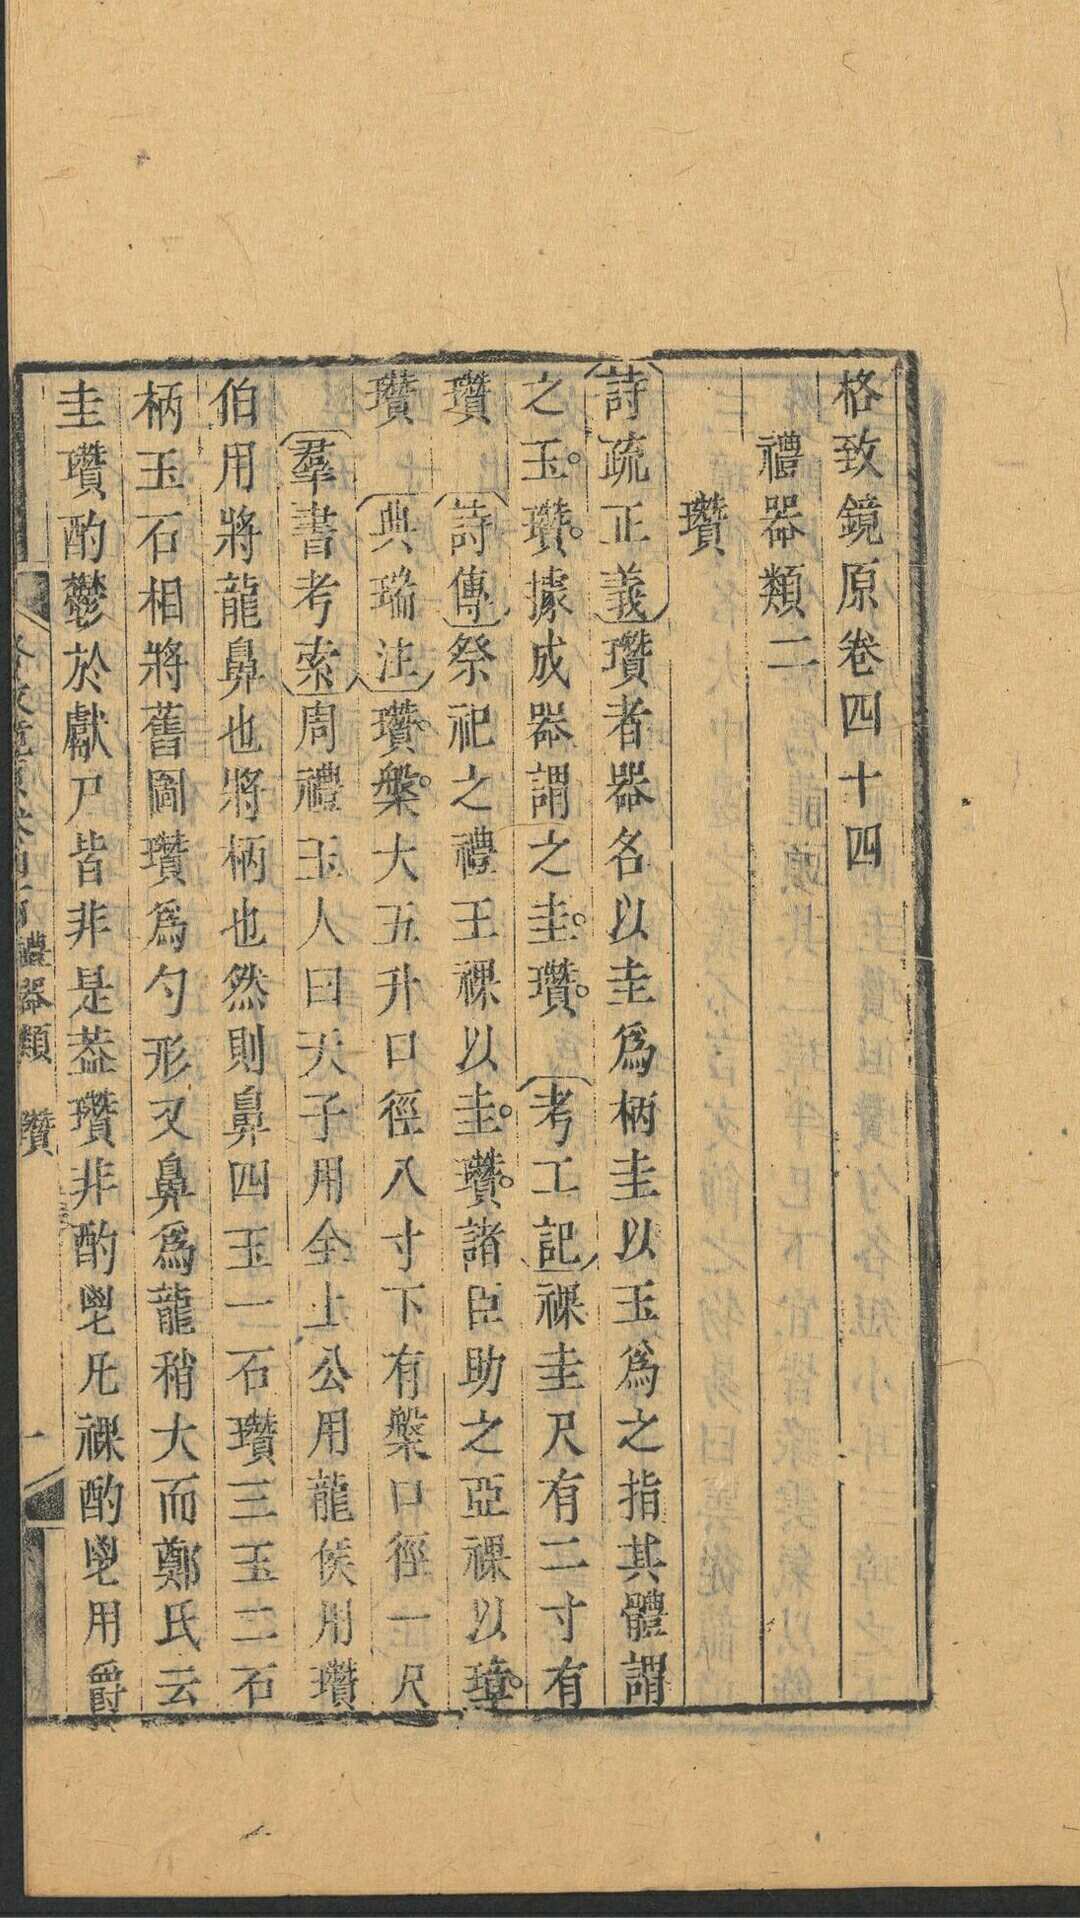 格致鏡原卷四十四
禮器類二
瓚
詩疏正義瓚者器名以圭爲柄圭以玉爲之指其體謂
之玉瓚據成器謂之圭瓚　考工記祼圭尺有二寸有
瓚　詩傳祭祀之禮王祼以圭瓚諸臣助之亞祼以璋
瓚　典瑞注瓚槃大五升口徑八寸下有槃口徑一尺
羣書考索周禮玉人曰天子用全上公用龍侯用瓚
伯用將龍鼻也將柄也然則鼻四玉一石瓚三玉二石
柄玉石相將舊圖瓚爲勺形又鼻爲龍稍大而鄭氏云
圭瓚酌鬱於獻尸皆非是葢瓚非酌鬯凡祼酌鬯用爵
格致鏡原卷四十四禮器類　瓚　一